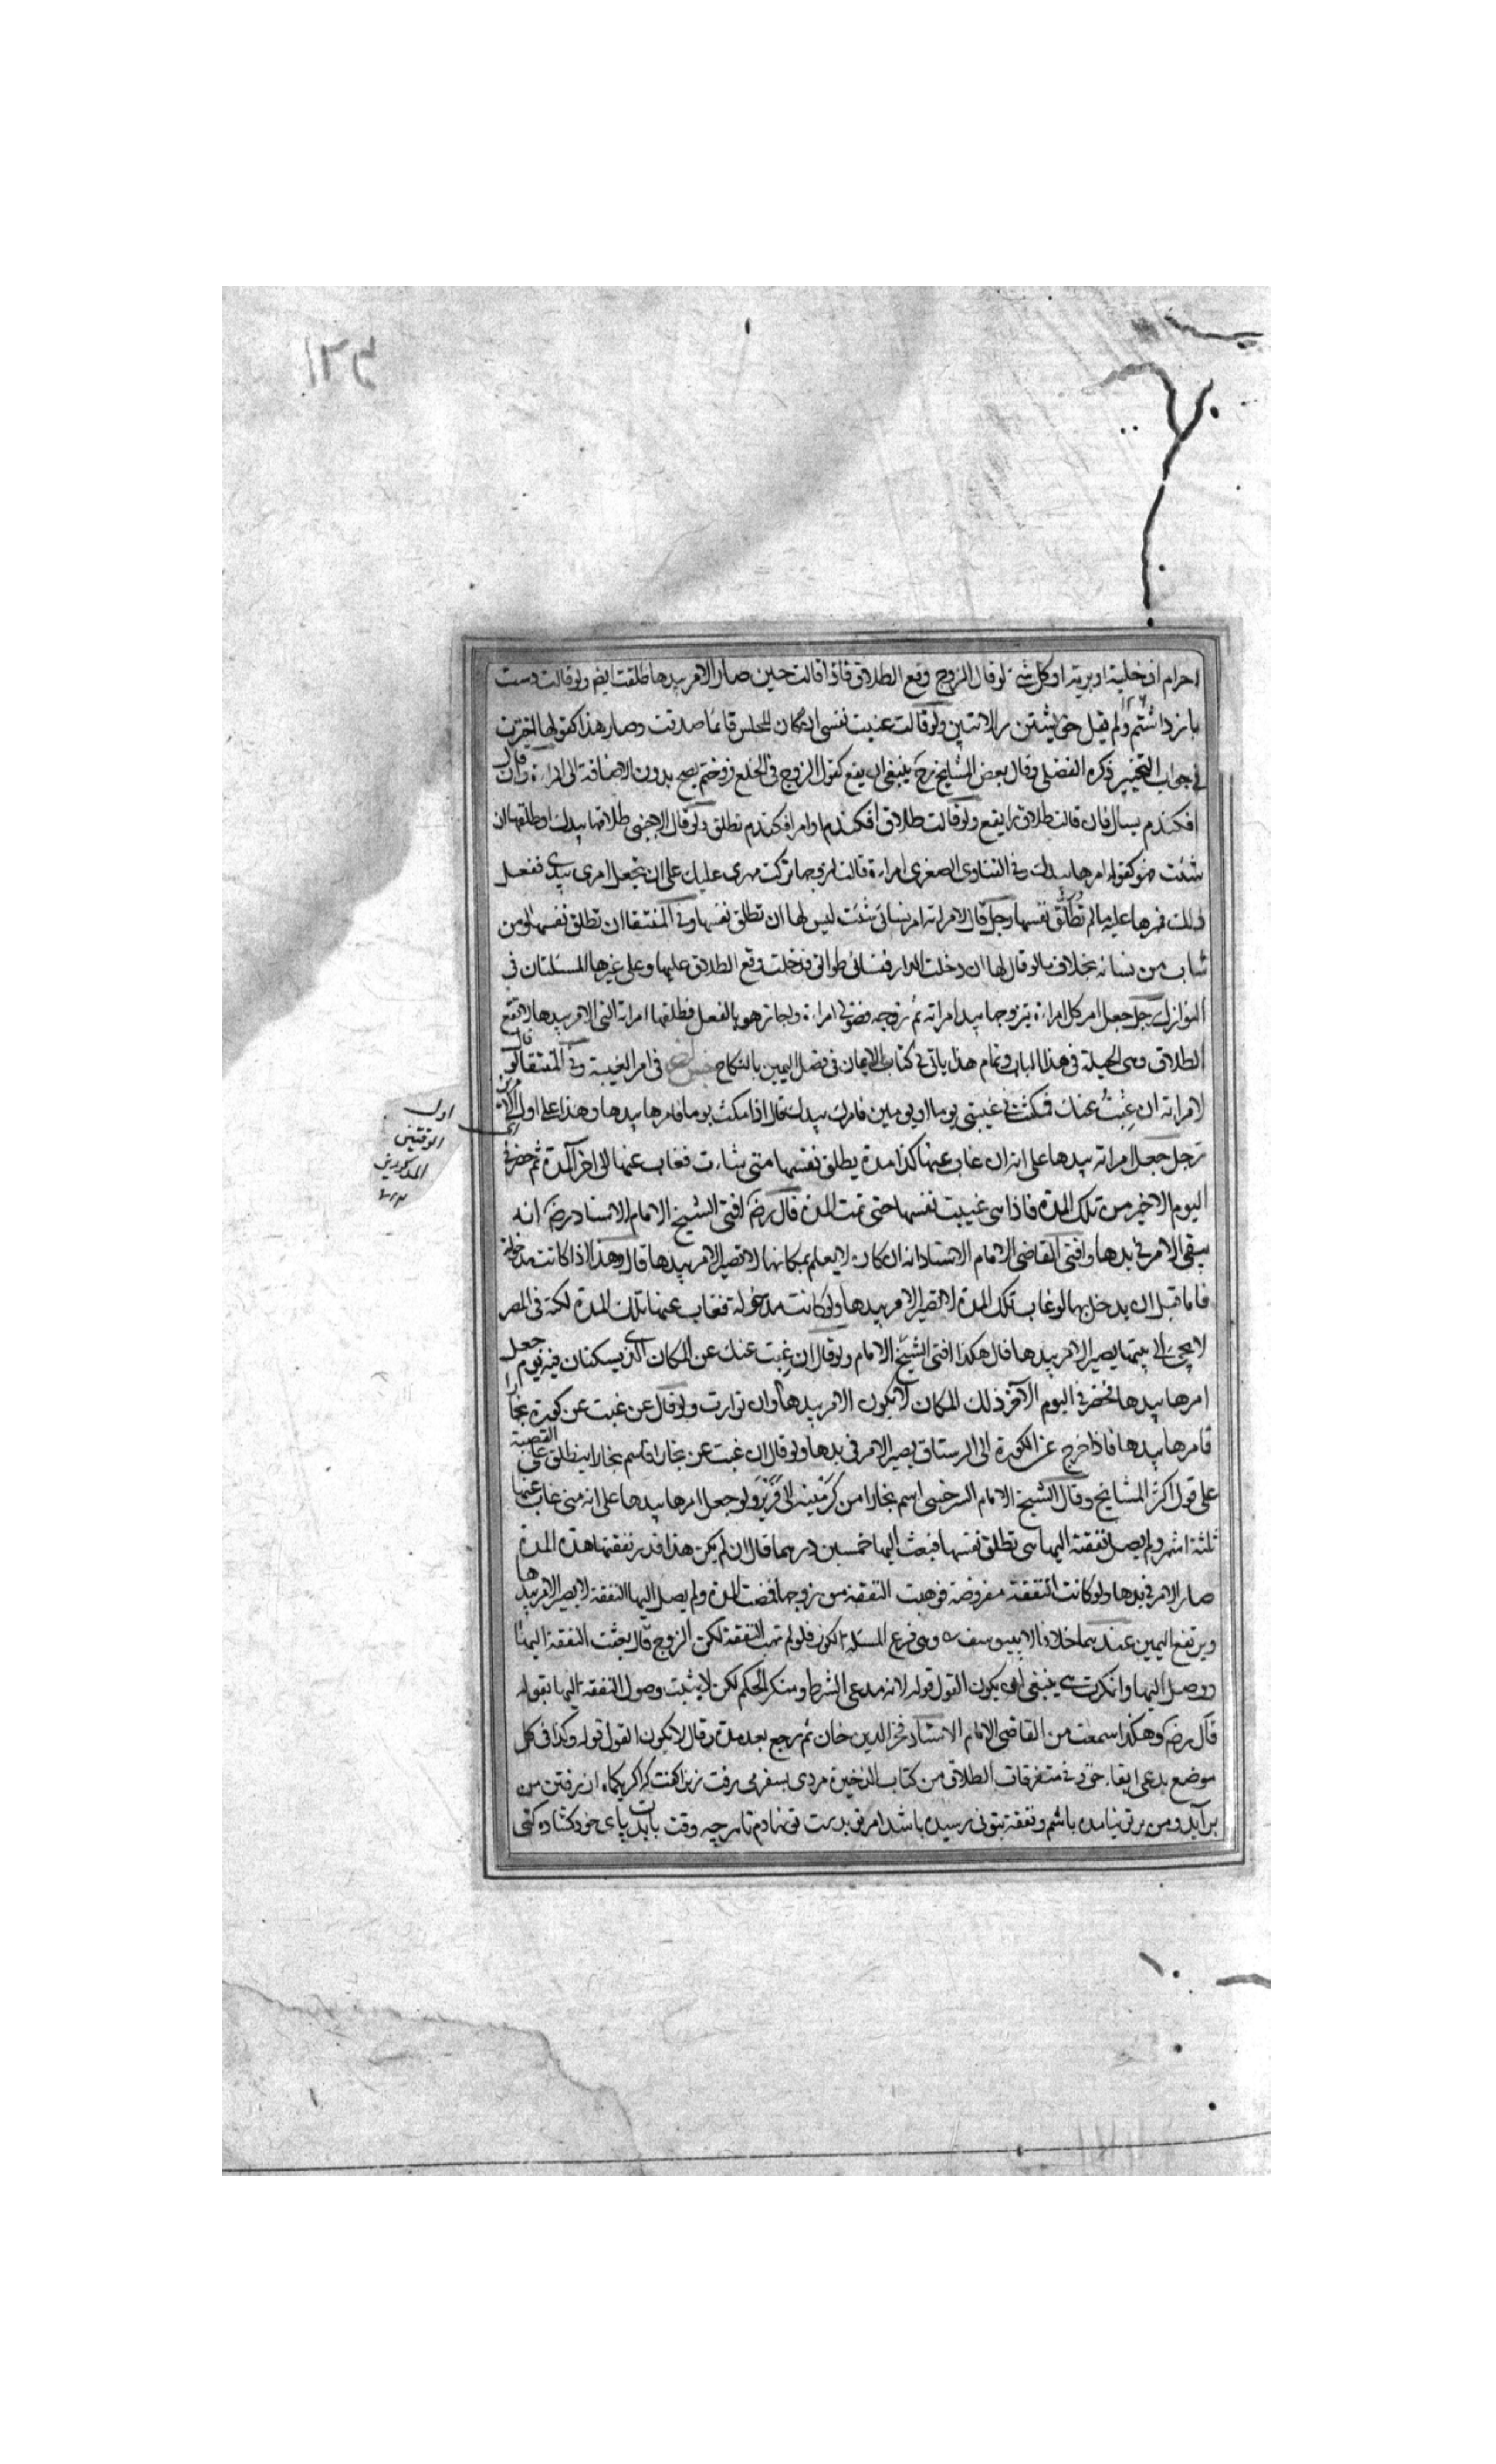 احرام او خلية او برية او كل شئ لو قال الزوج وقع الطلاق فاذا قالت حين صار الامر بيدها طلقت ايضا ولو قالت دست
باز داشتم ولم يقل خويشتن را لا تبين ولو قالت عنيت نفسى ان كان المجلس قائما صدقت وصار هذا كقولها اخترت
فى جواب التخيير ذكره الفضلى وقال بعض المشايخ رح ينبغى ان يقع كقول الزوج فى الخلع فروختم يصح بدون الاضافة الى المراءة وان قال
افكندم يسال فان قالت طلاق را يقع ولو قالت طلاق افكندم او امر افكندم تطلق ولو قال لاجنبى طلاقها بيدك او طلقها ان
شئت فهو كقوله امرها بيدك فى الفتاوى الصغرى امراءة قالت لزوجها تركت مهرى عليك على ان تجعل امرى بيدى ففعل
ذلك فمهرها عليه ما لم تطلق نفسها رجل قال لامراته امر نسائى شئت ليس لها ان تطلق نفسها وفى المنتقا ان تطلق نفسها ومن
شاءت من نسائه بخلاف ما لو قال لها ان دخلت الدار فنسائى طوالق فدخلت وقع الطلاق عليها وعلى غيرها المسئلتان فى
النوازل رجل جعل امر كل امراءة يتزوجها بيد امراته ثم زوجه فضولى امراءة واجاز هو بالفعل فطلقها امراته التى الامر بيدها لا يقع
الطلاق وهى الحيلة فى هذا الباب وتمام هذا ياتى فى كتاب الايمان فى فصل اليمين بالنكاح جنس فى امر الغيبة وفى المنتقا لو قال
لامراته ان غبت عنك فمكثت فى غيبتى يوما او يومين فامرك بيدك قال اذا مكث يوما فامرها بيدها وهذا على اول الامرين
اول
الوقتين
المذكورين
رجل جعل امراته بيدها على انه ان غاب عنها كذا مدة يطلق نفسها متى شاءت فغاب عنها الى اخر المدة ثم حضر فى
اليوم الاخير من تلك المدة فاذا هى غيبت نفسها حتى تمت المدة قال رضه افتى الشيخ الامام الاستاد رضه انه
يبقى الامر فى يدها وافتى القاضى الامام الاستاد انه ان كان لا يعلم بمكانها لا يصير الامر بيدها قال وهذا اذا كانت مدخولة
فاما قبل ان يدخل بها لو غاب تلك المدة لا يصير الامر بيدها ولو كانت مدخولة فغاب عنها تلك المدة لكنه فى المصر
لا يجئ الى بيتها يصير الامر بيدها قال هكذا افتى الشيخ الامام ولو قال ان غبت عنك عن المكان الذى يسكنان فيه يوم جعل
امرها بيدها فحضر فى اليوم الآخر ذلك المكان لا يكون الامر بيدها وان توارت ولو قال عن غبت عن كورة بخارا
فامرها بيدها فاذا خرج عن الكورة الى الرستاق يصير الامر فى يدها ولو قال ان غبت عن بخارا فاسم بخارا ينطلق على القصبة
على قول اكثر المشايخ وقال الشيخ الامام السرخسى اسم بخارا من كرمينه الى فربر ولو جعل امرها بيدها على انه متى غاب عنها
ثلثة اشهر ولم يصل نفقته اليها هى تطلق نفسها فبعث اليها خمسين درهما قال ان لم يكن هذا قدر نفقتها هذه المدة
صار الامر فى يدها ولو كانت النفقة مفروضة فوهبت النفقة من زوجها فمضت المدة ولم يصل اليها النفقة لا يصير الامر بيدها
ويرتفع اليمين عندهما خلافا لابى يوسف وهى فرع المسئلة الكوز فلو لم تهب النفقة لكن الزوج قال بعثت النفقة اليها
ووصل اليها وانكرت هى ينبغى ان يكون القول قوله لانه مدعى الشرط ومنكر الحكم لكن لا يثبت وصول النفقة اليها بقوله
قال رضه وهكذا سمعت من القاضى الامام الاستاد فخر الدين خان ثم رجع بعد مدة وقال لا يكون القول قوله وكذا فى كل
موضع يدعى ايفاء حق وفى متفرقات الطلاق من كتاب الذخيرة مردى بسفر مى رفت زنرا گفت كه اگر يكماه از رفتن من
برآيد ومن بر تو نيامده باشم ونفقة بتو نرسيده باشد امر تو بدست تو نهادم تا هرچه وقت بايدت پاى خود گشاده كنى